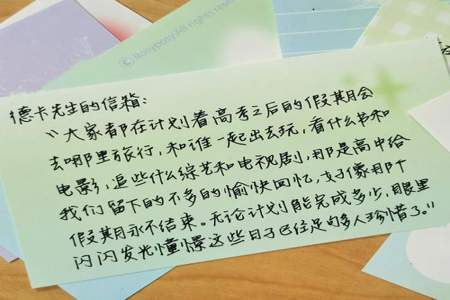 © Honeybody All rights reser
德卡先生的信箱:
"大家都在计划着高考之后的假期会
去哪里旅行,和谁一起出去玩,看什么书和
电影,追些什么综艺和电视剧,那是高中给
我们留下的不多的愉快回忆,好像那个
假期永不结束。无论计划能完成多少,眼里
闪闪发光憧憬这些日子已经足够多人珍惜了。"